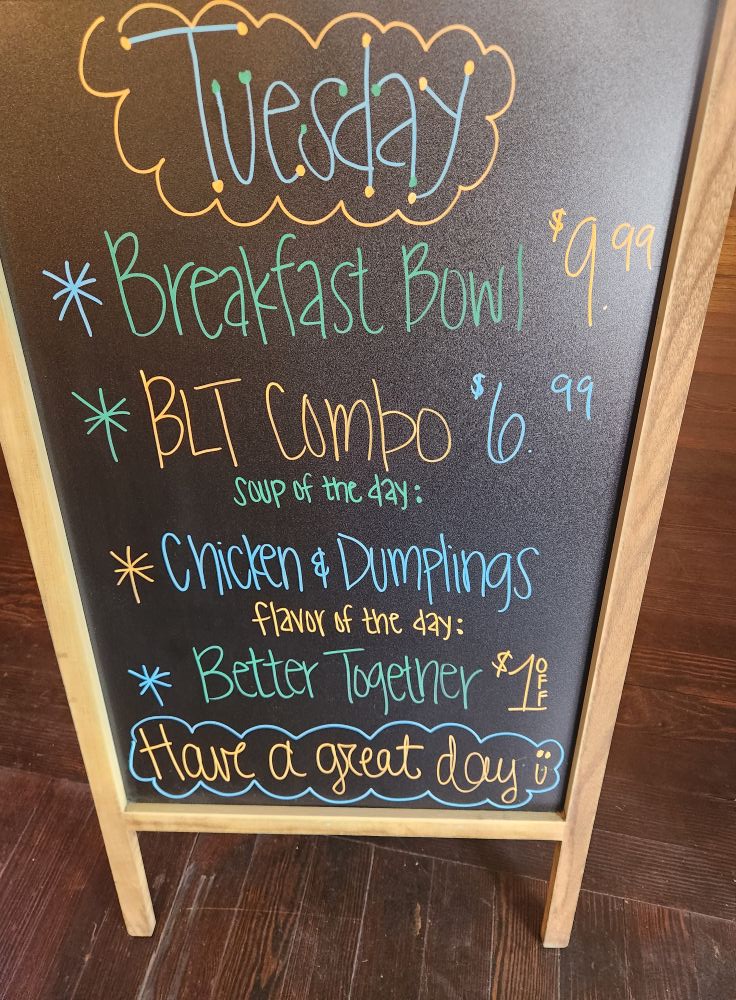 Tuesday
* Breakfast Bowl $9.99
* BLT Combo $6.99
soup of the day:
* Chicken & Dumplings
flavor of the day:
* Better Together $1 OFF
Have a great day :)